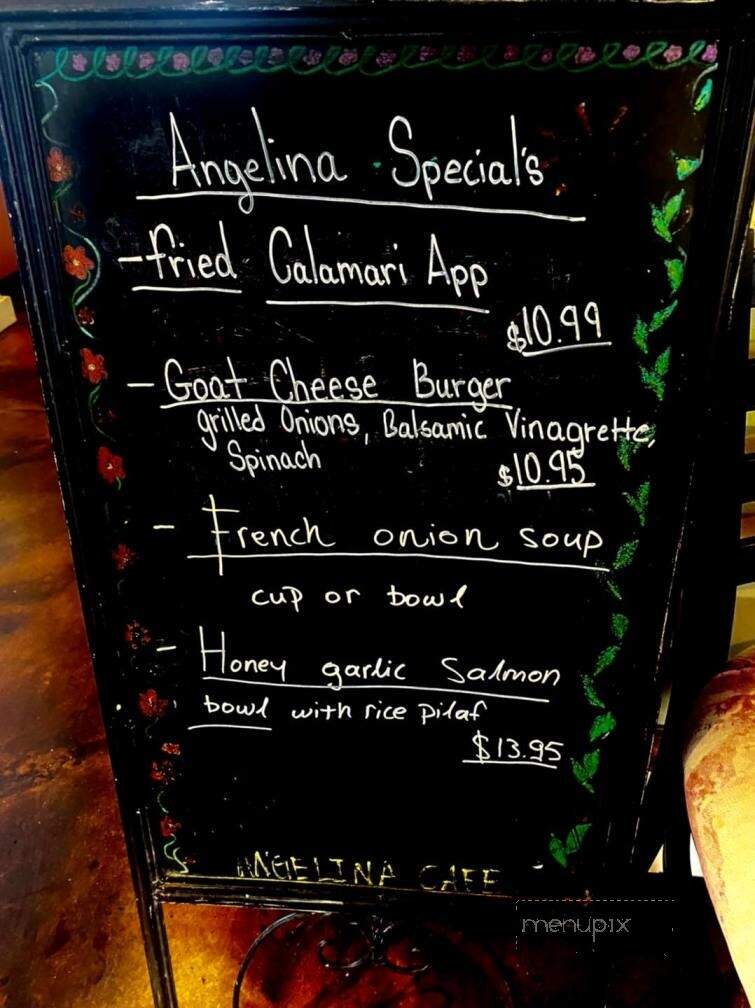 Angelina Special's
- fried Calamari App
$10.99
- Goat Cheese Burger
grilled Onions, Balsamic Vinagrette,
Spinach $10.95
- French onion soup
cup or bowl
- Honey garlic Salmon
bowl with rice pilaf
$13.95
ANGELINA CAFE
menupix